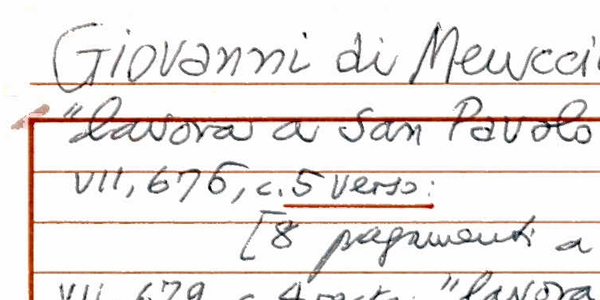 Giovanni di Meucci
"lavora a San Pavolo
VII, 676, c. 5 verso:
[8 pagamenti a
VII, 679, c. 4 recto: "lavora